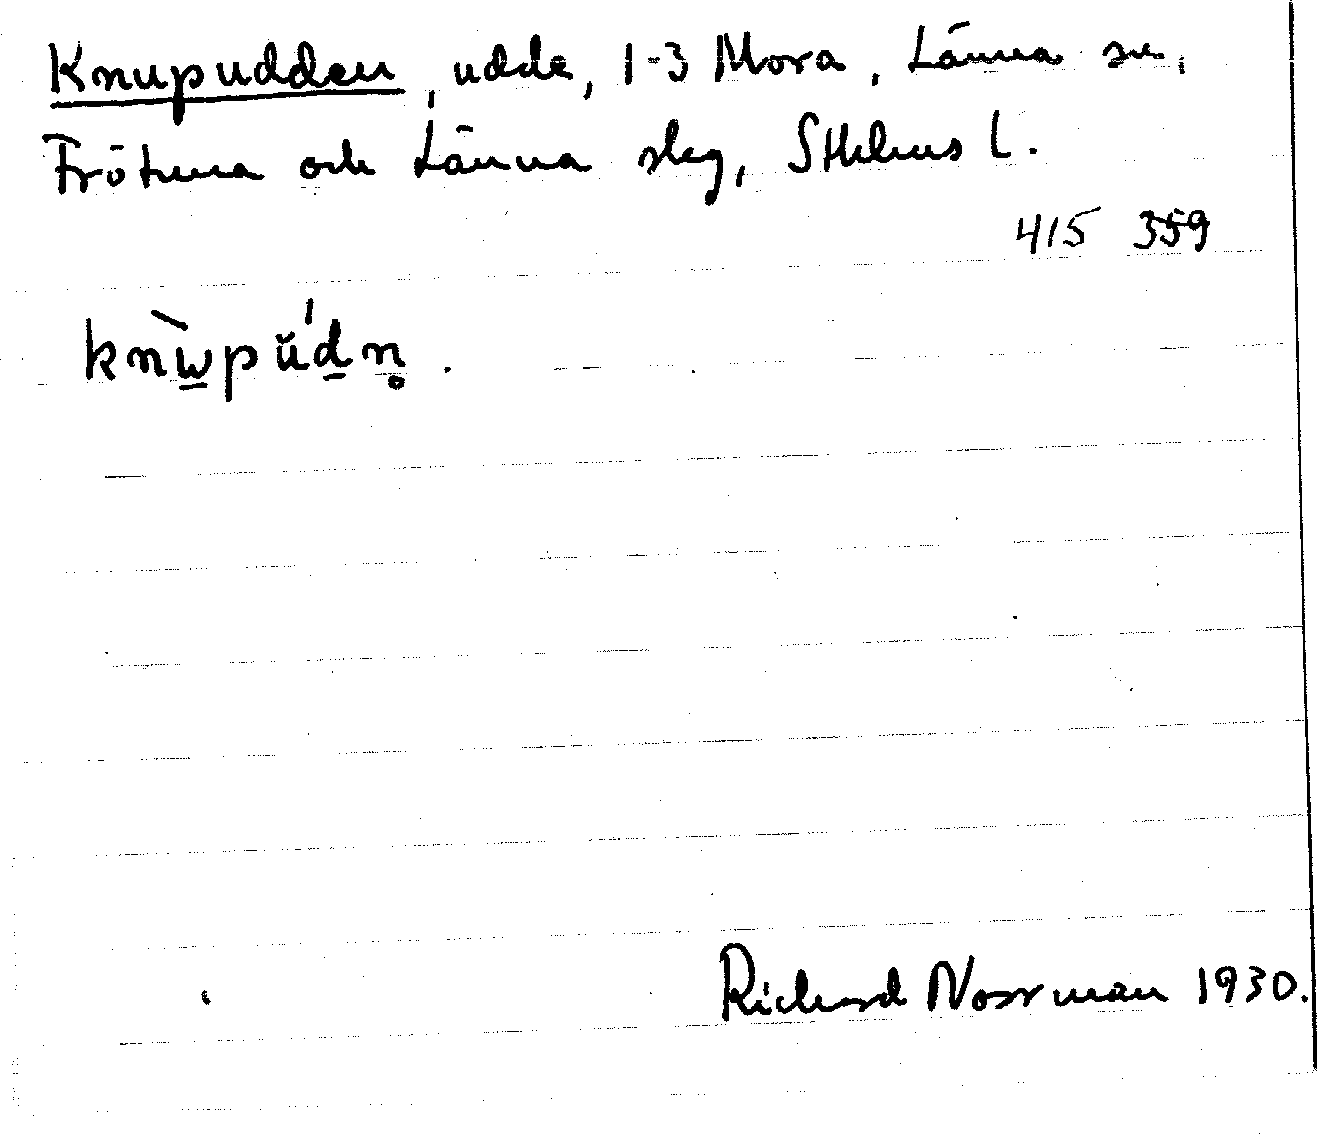 Knupudden, udde, 1-3 Mora, Länna sn,
Frötuna och Länna slg, Sthlms l.
415 359
knẁ̠pŭ́d̠n̥.
Richard Norrman 1930.